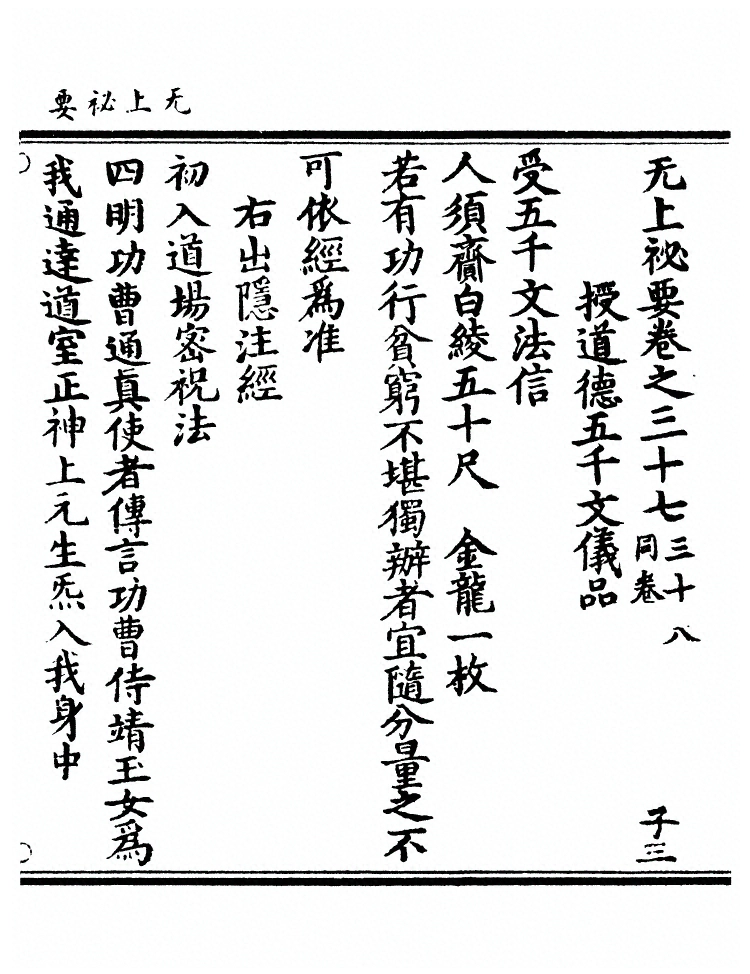 无上祕要
无上祕要卷之三十七三十八同卷 子三
授道德五千文儀品
受五千文法信
人須齎白綾五十尺 金龍一枚
若有功行貧窮不堪獨辦者宜隨分量之不
可依經爲准
右出隱注經
初入道場密祝法
四明功曹通眞使者傳言功曹侍靖玉女爲
我通達道室正神上元生炁入我身中